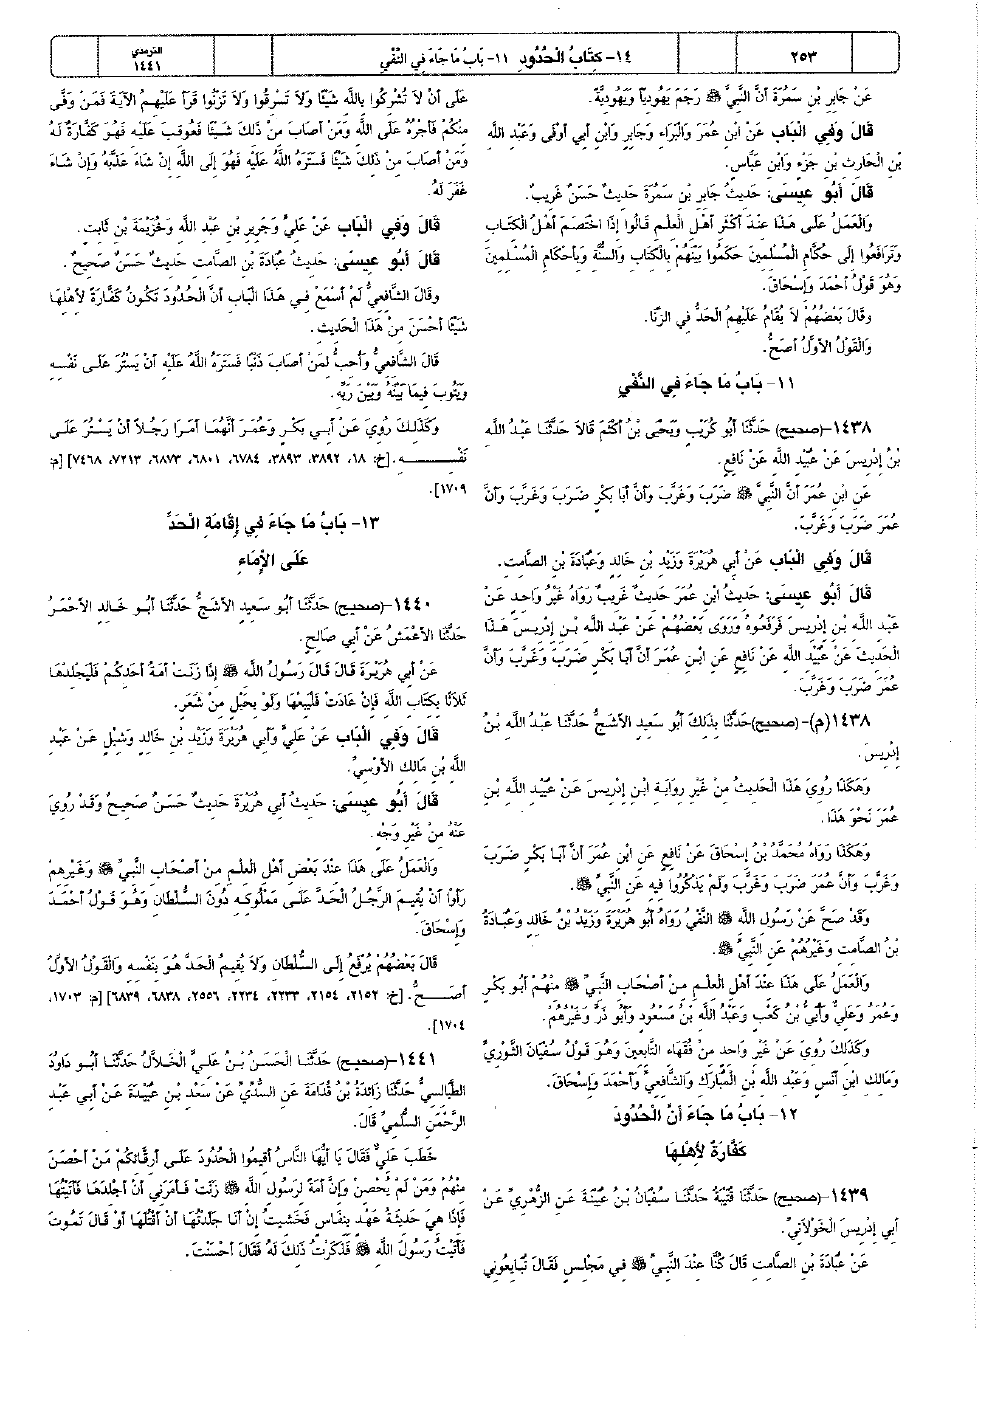 ٢٥٣
١٤- كِتَابُ الْحُدُودِ ١١- بَابُ مَا جَاءَ فِي النَّفْيِ
الترمذي
١٤٤١
عَنْ جَابِرِ بْنِ سَمُرَةَ أَنَّ النَّبِيَّ ﷺ رَجَمَ يَهُودِيًّا وَيَهُودِيَّةً.
قَالَ وَفِي الْبَابِ عَنْ ابْنِ عُمَرَ وَالْبَرَاءِ وَجَابِرٍ وَابْنِ أَبِي أَوْفَى وَعَبْدِ اللَّهِ
بْنِ الْحَارِثِ بْنِ جَزْءٍ وَابْنِ عَبَّاسٍ.
قَالَ أَبُو عِيسَى: حَدِيثُ جَابِرِ بْنِ سَمُرَةَ حَدِيثٌ حَسَنٌ غَرِيبٌ.
وَالْعَمَلُ عَلَى هَذَا عِنْدَ أَكْثَرِ أَهْلِ الْعِلْمِ قَالُوا إِذَا اخْتَصَمَ أَهْلُ الْكِتَابِ
وَتَرَافَعُوا إِلَى حُكَّامِ الْمُسْلِمِينَ حَكَمُوا بَيْنَهُمْ بِالْكِتَابِ وَالسُّنَّةِ وَبِأَحْكَامِ الْمُسْلِمِينَ
وَهُوَ قَوْلُ أَحْمَدَ وَإِسْحَاقَ.
وقَالَ بَعْضُهُمْ لاَ يُقَامُ عَلَيْهِمُ الْحَدُّ فِي الزِّنَا.
وَالْقَوْلُ الأَوَّلُ أَصَحُّ.
١١- بَابُ مَا جَاءَ فِي النَّفْيِ
١٤٣٨-(صحيح) حَدَّثَنَا أَبُو كُرَيْبٍ وَيَحْيَى بْنُ أَكْثَمَ قَالاَ حَدَّثَنَا عَبْدُ اللَّهِ
بْنُ إِدْرِيسَ عَنْ عُبَيْدِ اللَّهِ عَنْ نَافِعٍ.
عَنِ ابْنِ عُمَرَ أَنَّ النَّبِيَّ ﷺ ضَرَبَ وَغَرَّبَ وَأَنَّ أَبَا بَكْرٍ ضَرَبَ وَغَرَّبَ وَأَنَّ
عُمَرَ ضَرَبَ وَغَرَّبَ.
قَالَ وَفِي الْبَابِ عَنْ أَبِي هُرَيْرَةَ وَزَيْدِ بْنِ خَالِدٍ وَعُبَادَةَ بْنِ الصَّامِتِ.
قَالَ أَبُو عِيسَى: حَدِيثُ ابْنِ عُمَرَ حَدِيثٌ غَرِيبٌ رَوَاهُ غَيْرُ وَاحِدٍ عَنْ
عَبْدِ اللَّهِ بْنِ إِدْرِيسَ فَرَفَعُوهُ وَرَوَى بَعْضُهُمْ عَنْ عَبْدِ اللَّهِ بْنِ إِدْرِيسَ هَذَا
الْحَدِيثَ عَنْ عُبَيْدِ اللَّهِ عَنْ نَافِعٍ عَنِ ابْنِ عُمَرَ أَنَّ أَبَا بَكْرٍ ضَرَبَ وَغَرَّبَ وَأَنَّ
عُمَرَ ضَرَبَ وَغَرَّبَ.
١٤٣٨(م)- (صحيح)حَدَّثَنَا بِذَلِكَ أَبُو سَعِيدٍ الأَشَجُّ حَدَّثَنَا عَبْدُ اللَّهِ بْنُ
إِدْرِيسَ.
وَهَكَذَا رُوِيَ هَذَا الْحَدِيثُ مِنْ غَيْرِ رِوَايَةِ ابْنِ إِدْرِيسَ عَنْ عُبَيْدِ اللَّهِ بْنِ
عُمَرَ نَحْوَ هَذَا.
وَهَكَذَا رَوَاهُ مُحَمَّدُ بْنُ إِسْحَاقَ عَنْ نَافِعٍ عَنِ ابْنِ عُمَرَ أَنَّ أَبَا بَكْرٍ ضَرَبَ
وَغَرَّبَ وَأَنَّ عُمَرَ ضَرَبَ وَغَرَّبَ وَلَمْ يَذْكُرُوا فِيهِ عَنِ النَّبِيِّ ﷺ.
وَقَدْ صَحَّ عَنْ رَسُولِ اللَّهِ ﷺ النَّفْيُ رَوَاهُ أَبُو هُرَيْرَةَ وَزَيْدُ بْنُ خَالِدٍ وَعُبَادَةُ
بْنُ الصَّامِتِ وَغَيْرُهُمْ عَنِ النَّبِيِّ ﷺ.
وَالْعَمَلُ عَلَى هَذَا عِنْدَ أَهْلِ الْعِلْمِ مِنْ أَصْحَابِ النَّبِيِّ ﷺ مِنْهُمْ أَبُو بَكْرٍ
وَعُمَرُ وَعَلِيٌّ وَأُبَيُّ بْنُ كَعْبٍ وَعَبْدُ اللَّهِ بْنُ مَسْعُودٍ وَأَبُو ذَرٍّ وَغَيْرُهُمْ.
وَكَذَلِكَ رُوِيَ عَنْ غَيْرِ وَاحِدٍ مِنْ فُقَهَاءِ التَّابِعِينَ وَهُوَ قَوْلُ سُفْيَانَ الثَّوْرِيِّ
وَمَالِكِ ابْنِ أَنَسٍ وَعَبْدِ اللَّهِ بْنِ الْمُبَارَكِ وَالشَّافِعِيِّ وَأَحْمَدَ وَإِسْحَاقَ.
١٢- بَابُ مَا جَاءَ أَنَّ الْحُدُودَ
كَفَّارَةٌ لأَهْلِهَا
١٤٣٩-(صحيح) حَدَّثَنَا قُتَيْبَةُ حَدَّثَنَا سُفْيَانُ بْنُ عُيَيْنَةَ عَنِ الزُّهْرِيِّ عَنْ
أَبِي إِدْرِيسَ الْخَوْلاَنِيِّ.
عَنْ عُبَادَةَ بْنِ الصَّامِتِ قَالَ كُنَّا عِنْدَ النَّبِيِّ ﷺ فِي مَجْلِسٍ فَقَالَ تُبَايِعُونِي
عَلَى أَنْ لاَ تُشْرِكُوا بِاللَّهِ شَيْئًا وَلاَ تَسْرِقُوا وَلاَ تَزْنُوا قَرَأَ عَلَيْهِمُ الآيَةَ فَمَنْ وَفَى
مِنْكُمْ فَأَجْرُهُ عَلَى اللَّهِ وَمَنْ أَصَابَ مِنْ ذَلِكَ شَيْئًا فَعُوقِبَ عَلَيْهِ فَهُوَ كَفَّارَةٌ لَهُ
وَمَنْ أَصَابَ مِنْ ذَلِكَ شَيْئًا فَسَتَرَهُ اللَّهُ عَلَيْهِ فَهُوَ إِلَى اللَّهِ إِنْ شَاءَ عَذَّبَهُ وَإِنْ شَاءَ
غَفَرَ لَهُ.
قَالَ وَفِي الْبَابِ عَنْ عَلِيٍّ وَجَرِيرِ بْنِ عَبْدِ اللَّهِ وَخُزَيْمَةَ بْنِ ثَابِتٍ.
قَالَ أَبُو عِيسَى: حَدِيثُ عُبَادَةَ بْنِ الصَّامِتِ حَدِيثٌ حَسَنٌ صَحِيحٌ.
وقَالَ الشَّافِعِيُّ لَمْ أَسْمَعْ فِي هَذَا الْبَابِ أَنَّ الْحُدُودَ تَكُونُ كَفَّارَةً لأَهْلِهَا
شَيْئًا أَحْسَنَ مِنْ هَذَا الْحَدِيثِ.
قَالَ الشَّافِعِيُّ وَأُحِبُّ لِمَنْ أَصَابَ ذَنْبًا فَسَتَرَهُ اللَّهُ عَلَيْهِ أَنْ يَسْتُرَ عَلَى نَفْسِهِ
وَيَتُوبَ فِيمَا بَيْنَهُ وَبَيْنَ رَبِّهِ.
وَكَذَلِكَ رُوِيَ عَنْ أَبِي بَكْرٍ وَعُمَرَ أَنَّهُمَا أَمَرَا رَجُلاً أَنْ يَسْتُرَ عَلَى
نَفْسِهِ.[خ: ١٨، ٣٨٩٢، ٣٨٩٣، ٦٧٨٤، ٦٨٠١، ٦٨٧٣، ٧٢١٣، ٧٤٦٨] [م:
١٧٠٩].
١٣- بَابُ مَا جَاءَ فِي إِقَامَةِ الْحَدِّ
عَلَى الإِمَاءِ
١٤٤٠-(صحيح) حَدَّثَنَا أَبُو سَعِيدٍ الأَشَجُّ حَدَّثَنَا أَبُو خَالِدٍ الأَحْمَرُ
حَدَّثَنَا الأَعْمَشُ عَنْ أَبِي صَالِحٍ.
عَنْ أَبِي هُرَيْرَةَ قَالَ قَالَ رَسُولُ اللَّهِ ﷺ إِذَا زَنَتْ أَمَةُ أَحَدِكُمْ فَلْيَجْلِدْهَا
ثَلاَثًا بِكِتَابِ اللَّهِ فَإِنْ عَادَتْ فَلْيَبِعْهَا وَلَوْ بِحَبْلٍ مِنْ شَعَرٍ.
قَالَ وَفِي الْبَابِ عَنْ عَلِيٍّ وَأَبِي هُرَيْرَةَ وَزَيْدِ بْنِ خَالِدٍ وَشِبْلٍ عَنْ عَبْدِ
اللَّهِ بْنِ مَالِكٍ الأَوْسِيِّ.
قَالَ أَبُو عِيسَى: حَدِيثُ أَبِي هُرَيْرَةَ حَدِيثٌ حَسَنٌ صَحِيحٌ وَقَدْ رُوِيَ
عَنْهُ مِنْ غَيْرِ وَجْهٍ.
وَالْعَمَلُ عَلَى هَذَا عِنْدَ بَعْضِ أَهْلِ الْعِلْمِ مِنْ أَصْحَابِ النَّبِيِّ ﷺ وَغَيْرِهِمْ
رَأَوْا أَنْ يُقِيمَ الرَّجُلُ الْحَدَّ عَلَى مَمْلُوكِهِ دُونَ السُّلْطَانِ وَهُوَ قَوْلُ أَحْمَدَ
وَإِسْحَاقَ.
قَالَ بَعْضُهُمْ يُرْفَعُ إِلَى السُّلْطَانِ وَلاَ يُقِيمُ الْحَدَّ هُوَ بِنَفْسِهِ وَالْقَوْلُ الأَوَّلُ
أَصَحُّ. [خ: ٢١٥٢، ٢١٥٤، ٢٢٣٣، ٢٢٣٤، ٢٥٥٦، ٦٨٣٨، ٦٨٣٩] [م: ١٧٠٣،
١٧٠٤].
١٤٤١-(صحيح) حَدَّثَنَا الْحَسَنُ بْنُ عَلِيٍّ الْخَلاَّلُ حَدَّثَنَا أَبُو دَاوُدَ
الطَّيَالِسِيُّ حَدَّثَنَا زَائِدَةُ بْنُ قُدَامَةَ عَنِ السُّدِّيِّ عَنْ سَعْدِ بْنِ عُبَيْدَةَ عَنْ أَبِي عَبْدِ
الرَّحْمَنِ السُّلَمِيِّ قَالَ.
خَطَبَ عَلِيٌّ فَقَالَ يَا أَيُّهَا النَّاسُ أَقِيمُوا الْحُدُودَ عَلَى أَرِقَّائِكُمْ مَنْ أَحْصَنَ
مِنْهُمْ وَمَنْ لَمْ يُحْصِنْ وَإِنَّ أَمَةً لِرَسُولِ اللَّهِ ﷺ زَنَتْ فَأَمَرَنِي أَنْ أَجْلِدَهَا فَأَتَيْتُهَا
فَإِذَا هِيَ حَدِيثَةُ عَهْدٍ بِنِفَاسٍ فَخَشِيتُ إِنْ أَنَا جَلَدْتُهَا أَنْ أَقْتُلَهَا أَوْ قَالَ تَمُوتَ
فَأَتَيْتُ رَسُولَ اللَّهِ ﷺ فَذَكَرْتُ ذَلِكَ لَهُ فَقَالَ أَحْسَنْتَ.